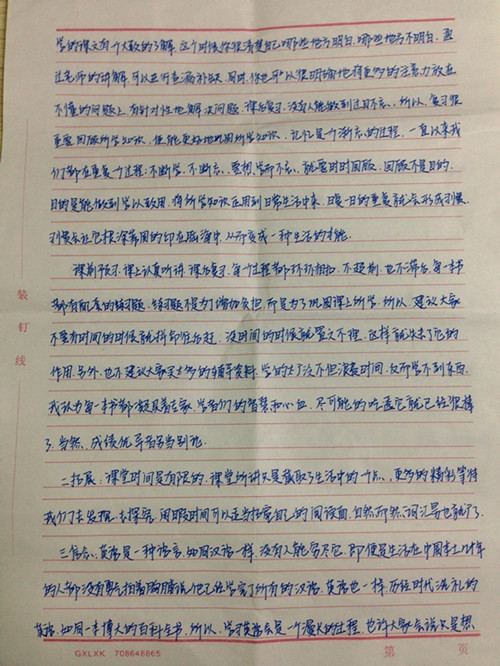 学的课文有个大致的了解，这个时候你很清楚自己哪些地方明白，哪些地方不明白，通
过老师的讲解，可以进行查漏补缺。同时，你也可以很明确地将更多的注意力放在
不懂的问题上，有针对性地解决问题。课后复习，没有人能做到过目不忘，所以，复习很
重要。回顾所学知识，便能更好地巩固所学知识，记忆是个渐忘的过程，一直以来我
们都在重复一个过程：不断学，不断忘。要想学而不忘，就要时时回顾。回顾不是目的，
目的是能做到学以致用，将所学知识运用到日常生活中来，日复一日的重复就会形成习惯，
习惯会让它根深蒂固的印在脑海中，从而变成一种生活的本能。
课前预习，课上认真听讲，课后复习，每个过程都环环相扣，不超前，也不滞后。每一本书
都有配套的练习题，练习题不是为了增加负担，而是为了巩固课上所学，所以，建议大家
不要有时间的时候就拼命往后赶，没时间的时候就置之不理，这样就失去了它的
作用。另外，也不建议大家买太多的辅导资料，学的太广泛不但浪费时间，反而学不到东西。
我认为每一本书都凝聚着专家、学者们的智慧和心血，尽可能的吃透它就已经很棒
了，当然，成绩优异者另当别论。
二拓展：课堂时间是有限的，课堂所讲只是截取了生活中的一点，更多的精彩等待
我们去发掘，去探究，闲暇时间可以适当拓宽自己的阅读面，自然而然，词汇量也就广了。
三信念：英语是一种语言，如同汉语一样，没有人能穷尽它，即便是生活在中国本土几十年
的人都没有勇气拍着胸脯说他已经学完了所有的汉语，英语也一样，历经时代洗礼的
英语，如同一本博大的百科全书，所以，学习英语会是一个漫长的过程，也许大家会说只是想
装
订
线
GXLXK 708646665
第 页